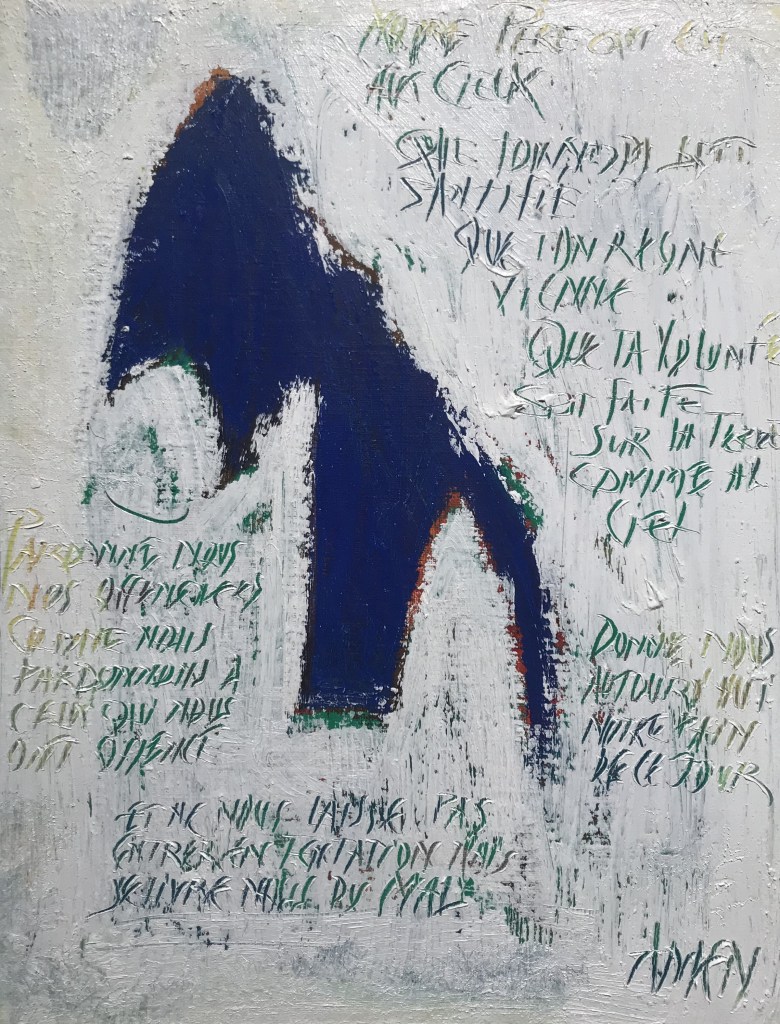 NOTRE PERE QUI ES
AUX CIEUX
QUE TON NOM SOIT
SANTIFIE
QUE TON REGNE
VIENNE
QUE TA VOLONTÉ
SOIT FAITE
SUR LA TERRE
COMME AU
CIEL
DONNE NOUS
AUJOURD'HUI
NOTRE PAIN
DE CE JOUR
PARDONNE NOUS
NOS OFFENCES
COMME NOUS
PARDONNONS A
CEUX QUI NOUS
ONT OFFENCÉ
ET NE NOUS LAISSE PAS
ENTRER EN TENTATION MAIS
DELIVRE NOUS DU MAL